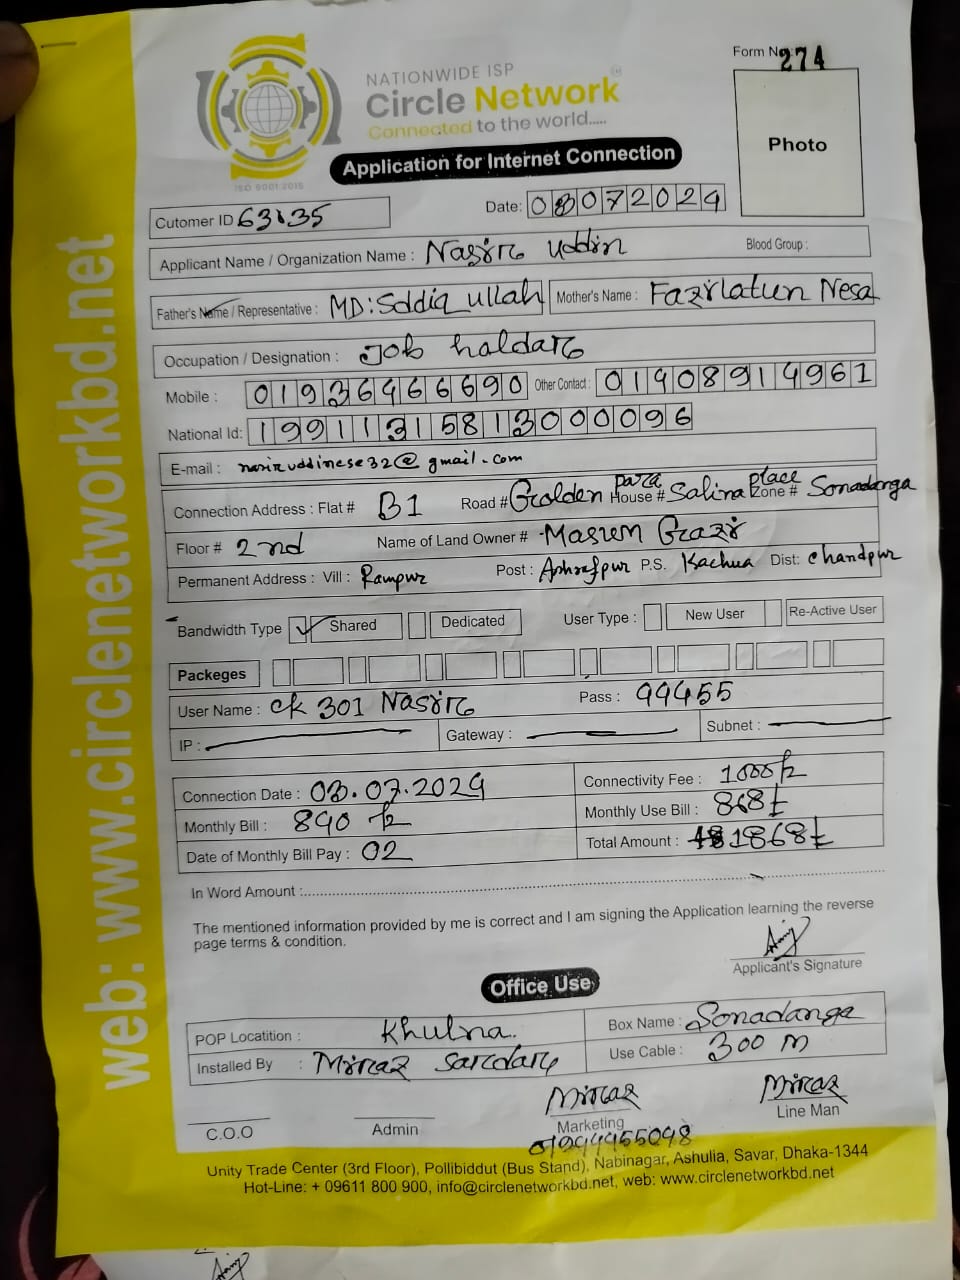 Form No: 274
NATIONWIDE ISP
Circle Network
Connected to the world.....
ISO 9001:2015
Application for Internet Connection
Photo
Cutomer ID 63135
Date: 08072024
Applicant Name / Organization Name : Nasir Uddin Blood Group :
Father's Name / Representative : MD: Siddiq Ullah Mother's Name : Fazilatun Nesa
Occupation / Designation : Job haldar
Mobile : 01936466690 Other Contact : 01908914961
National Id: 19911315813000096
E-mail : nasiruddinese32@gmail.com
Connection Address : Flat # B1 Road # Golden para House # Salina place Zone # Sonadanga
Floor # 2nd Name of Land Owner # Masum Gazi
Permanent Address : Vill : Rampur Post : Ashrafpur P.S. Kachua Dist: Chandpur
Bandwidth Type Shared Dedicated User Type : New User Re-Active User
Packeges
User Name : ck 301 Nasir Pass : 99455
IP : Gateway : Subnet :
Connection Date : 08.07.2024 Connectivity Fee : 1000 tk
Monthly Bill : 840 tk Monthly Use Bill : 868 t
Date of Monthly Bill Pay : 02 Total Amount : 1868 t
In Word Amount :
The mentioned information provided by me is correct and I am signing the Application learning the reverse
page terms & condition.
Applicant's Signature
Office Use
POP Locatition : Khulna. Box Name : Sonadanga
Installed By : Miraz Sardar Use Cable : 300 m
Miraz Miraz
C.O.O Admin Marketing Line Man
Unity Trade Center (3rd Floor), Pollibiddut (Bus Stand), Nabinagar, Ashulia, Savar, Dhaka-1344
Hot-Line: + 09611 800 900, info@circlenetworkbd.net, web: www.circlenetworkbd.net
web: www.circlenetworkbd.net